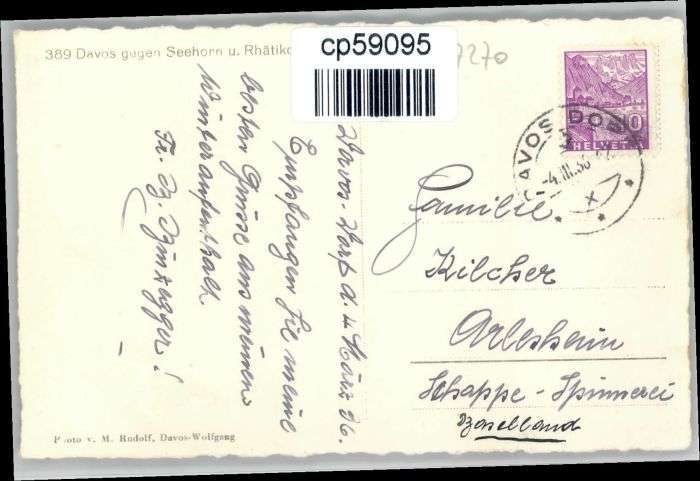 389 Davos gegen Seehorn u. Rhätiko
cp59095
7270
10
HELVETIA
DAVOS DORF
-4.III.36
X
Davos-Dorf d. 4 März 36.
Empfangen Sie meine
besten Grüsse aus meinem
Winteraufenthalt
Fr.
Familie
Kilcher
Arlesheim
Schappe-Spinnerei
Baselland
Photo v. M. Rudolf, Davos-Wolfgang